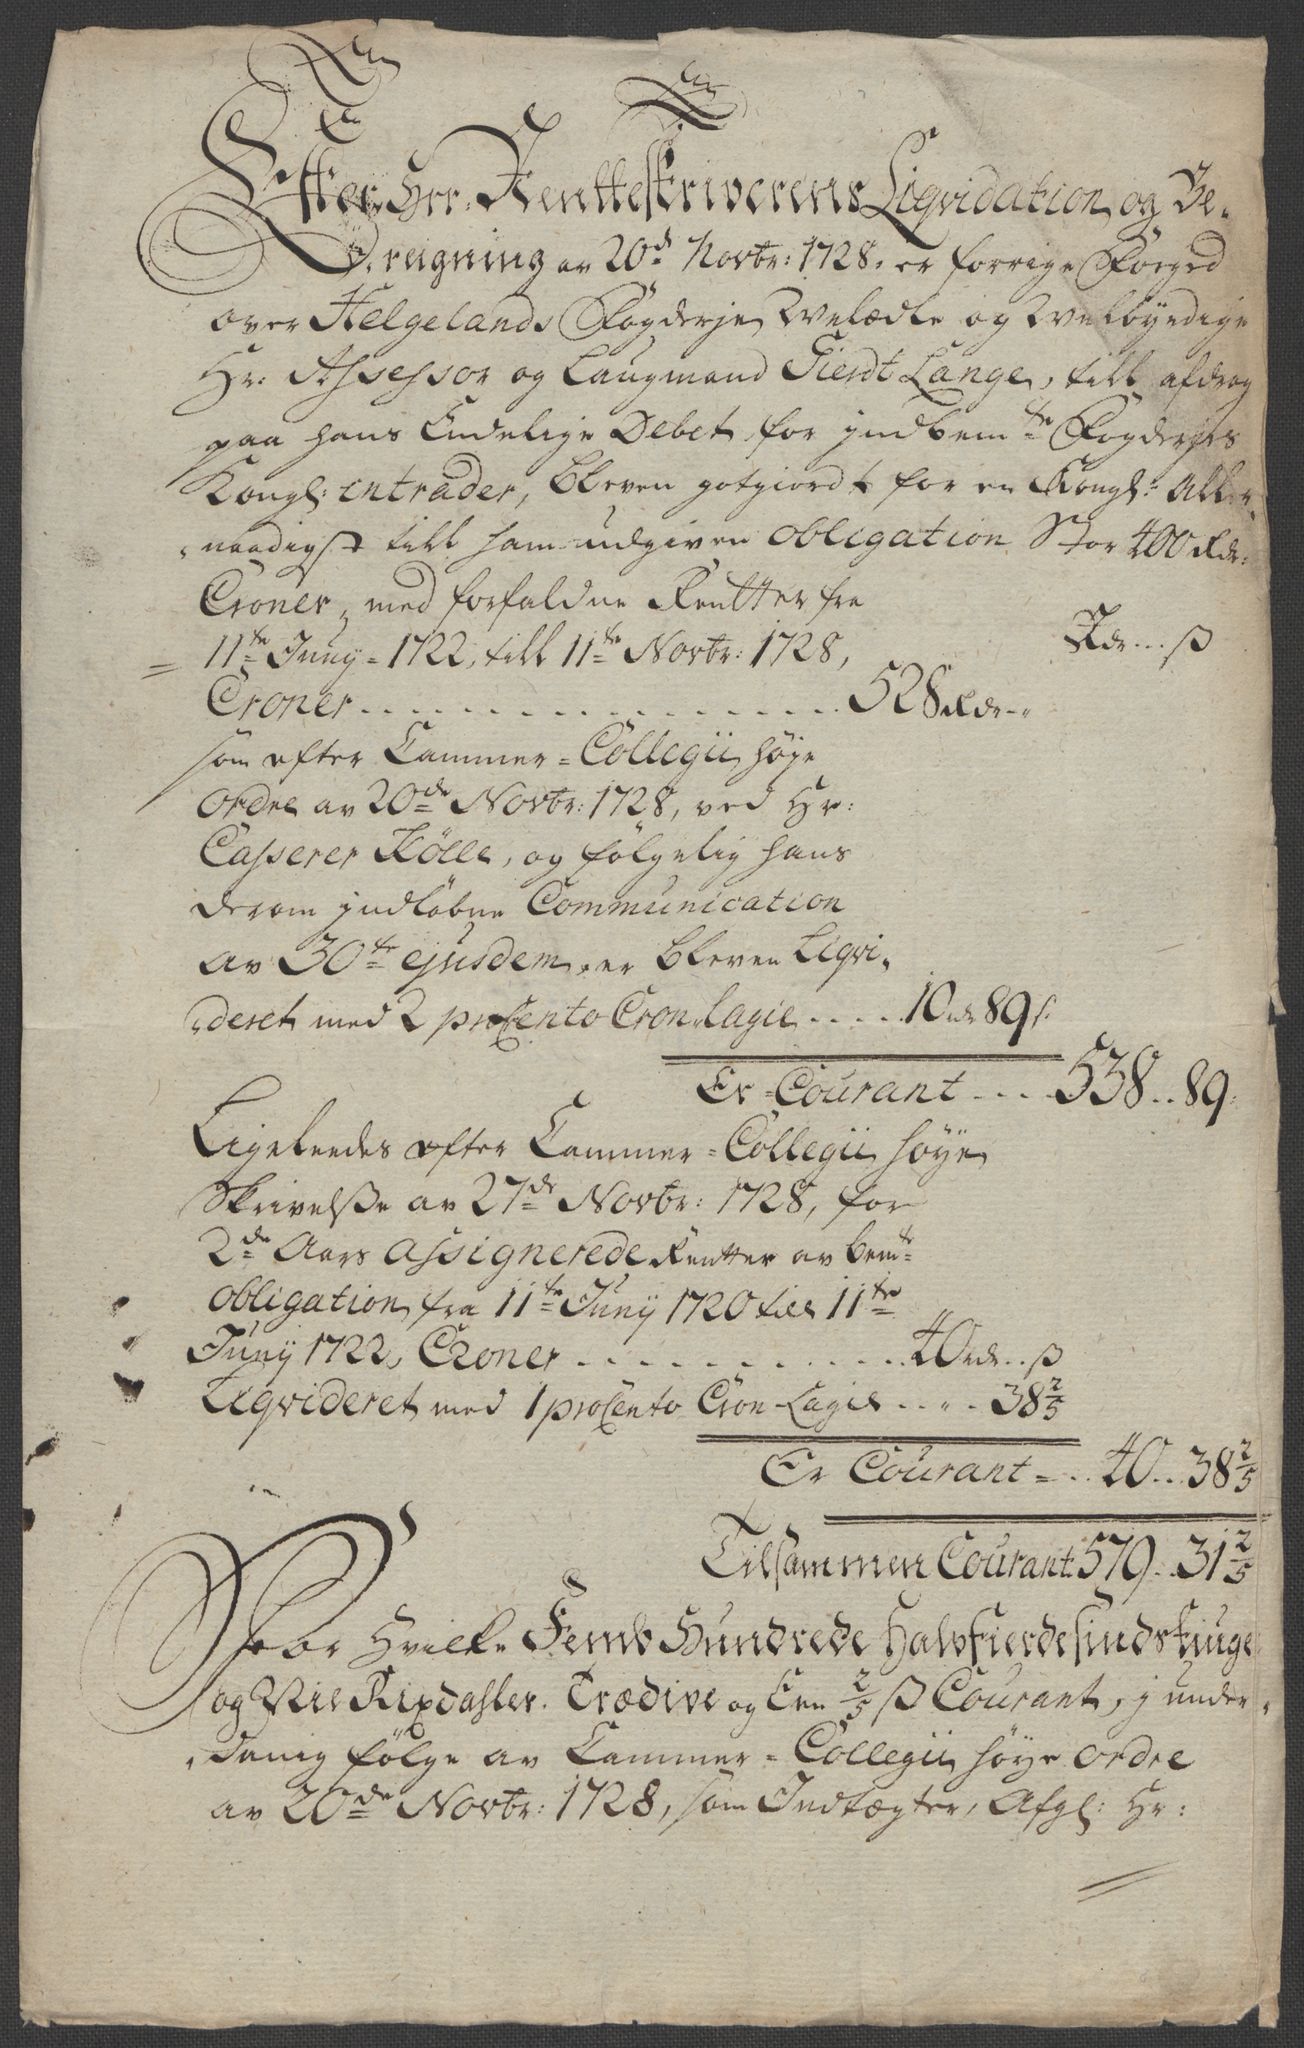 Effter Hrr: Rentteskriverens Liqvidation og Be-
reigning av 20de Novbr: 1728, er forrige Foeged
over Helgelands Fögderje Welædle og Welbyrdige
Hr: Assessor og Laugmand Gierdt Lange, till afdrag
paa hans Endelige Debet for indbemte Fogderjes
Kongl: intrader, bleven gotgiordt for en Kongl: Aller-
naadigst till ham udgiven obligation Stor 400 Rdr:
Croner, med forfaldne Rentter fra
11te Juny 1722, till 11te Novbr: 1728, Rdr...ß
Croner . . . . . . . . . . . . . . . . 528 Rdr - "
som efter Cammer-Collegii høye
ordre av 20de Novbr: 1728, ved Hr:
Casserer Kölle, og fölgelig hans
derom indlöbne Communication
av 30te ejusdem, er bleven Liqvi-
deret med 2 proCento Cron-Lagie . . . . 10 rdr 89 s:
Er Courant . . . . 538 .. 89:
Ligeleedes efter Cammer-Collegii høye
Skrivelsse av 27de Novbr: 1728, for
2de Aars assignerede Rentter av bemte
obligation fra 11te Juny 1720 till 11te
Juny 1722, Croner . . . . . . . . . . . 40 rdr..ß
Liqvideret med 1 proCento Cron-Lagie .. " . 38 2/5
Er Courant - .. 40 .. 38 2/5
Tilsammen Courant 579 .. 31 2/5
For Hvilke Femb Hundrede Halvfierdesindstiuge
og Nie Rixdahler. Trædive og Een 2/5 ß Courant, j under-
danig fölge av Cammer-Collegii høye ordre
av 20de Novbr: 1728, som Indtægter, Afgl: Hr: